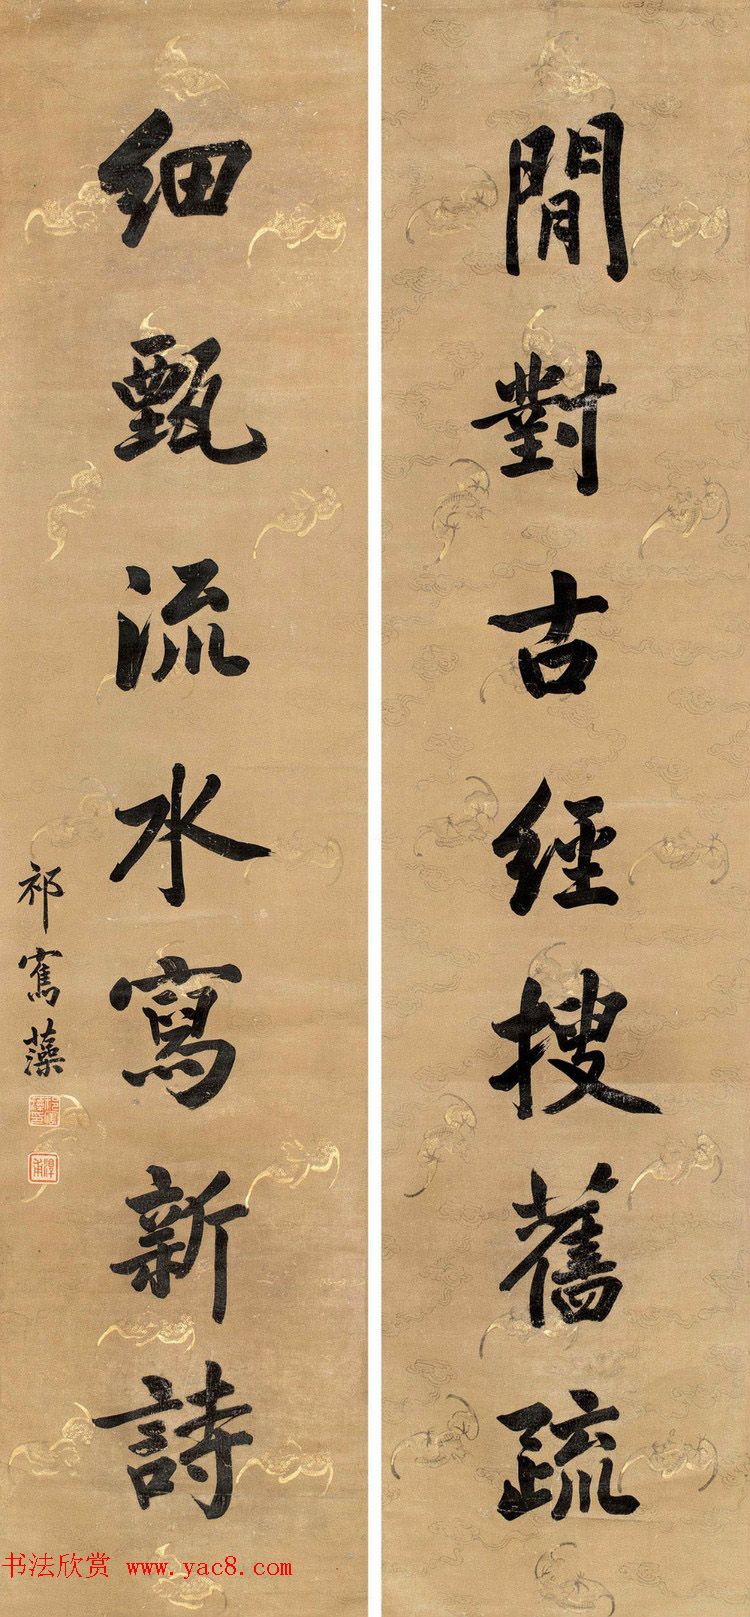 閒對古經搜舊疏
細甄流水寫新詩
祁寯藻
书法欣赏 www.yac8.com